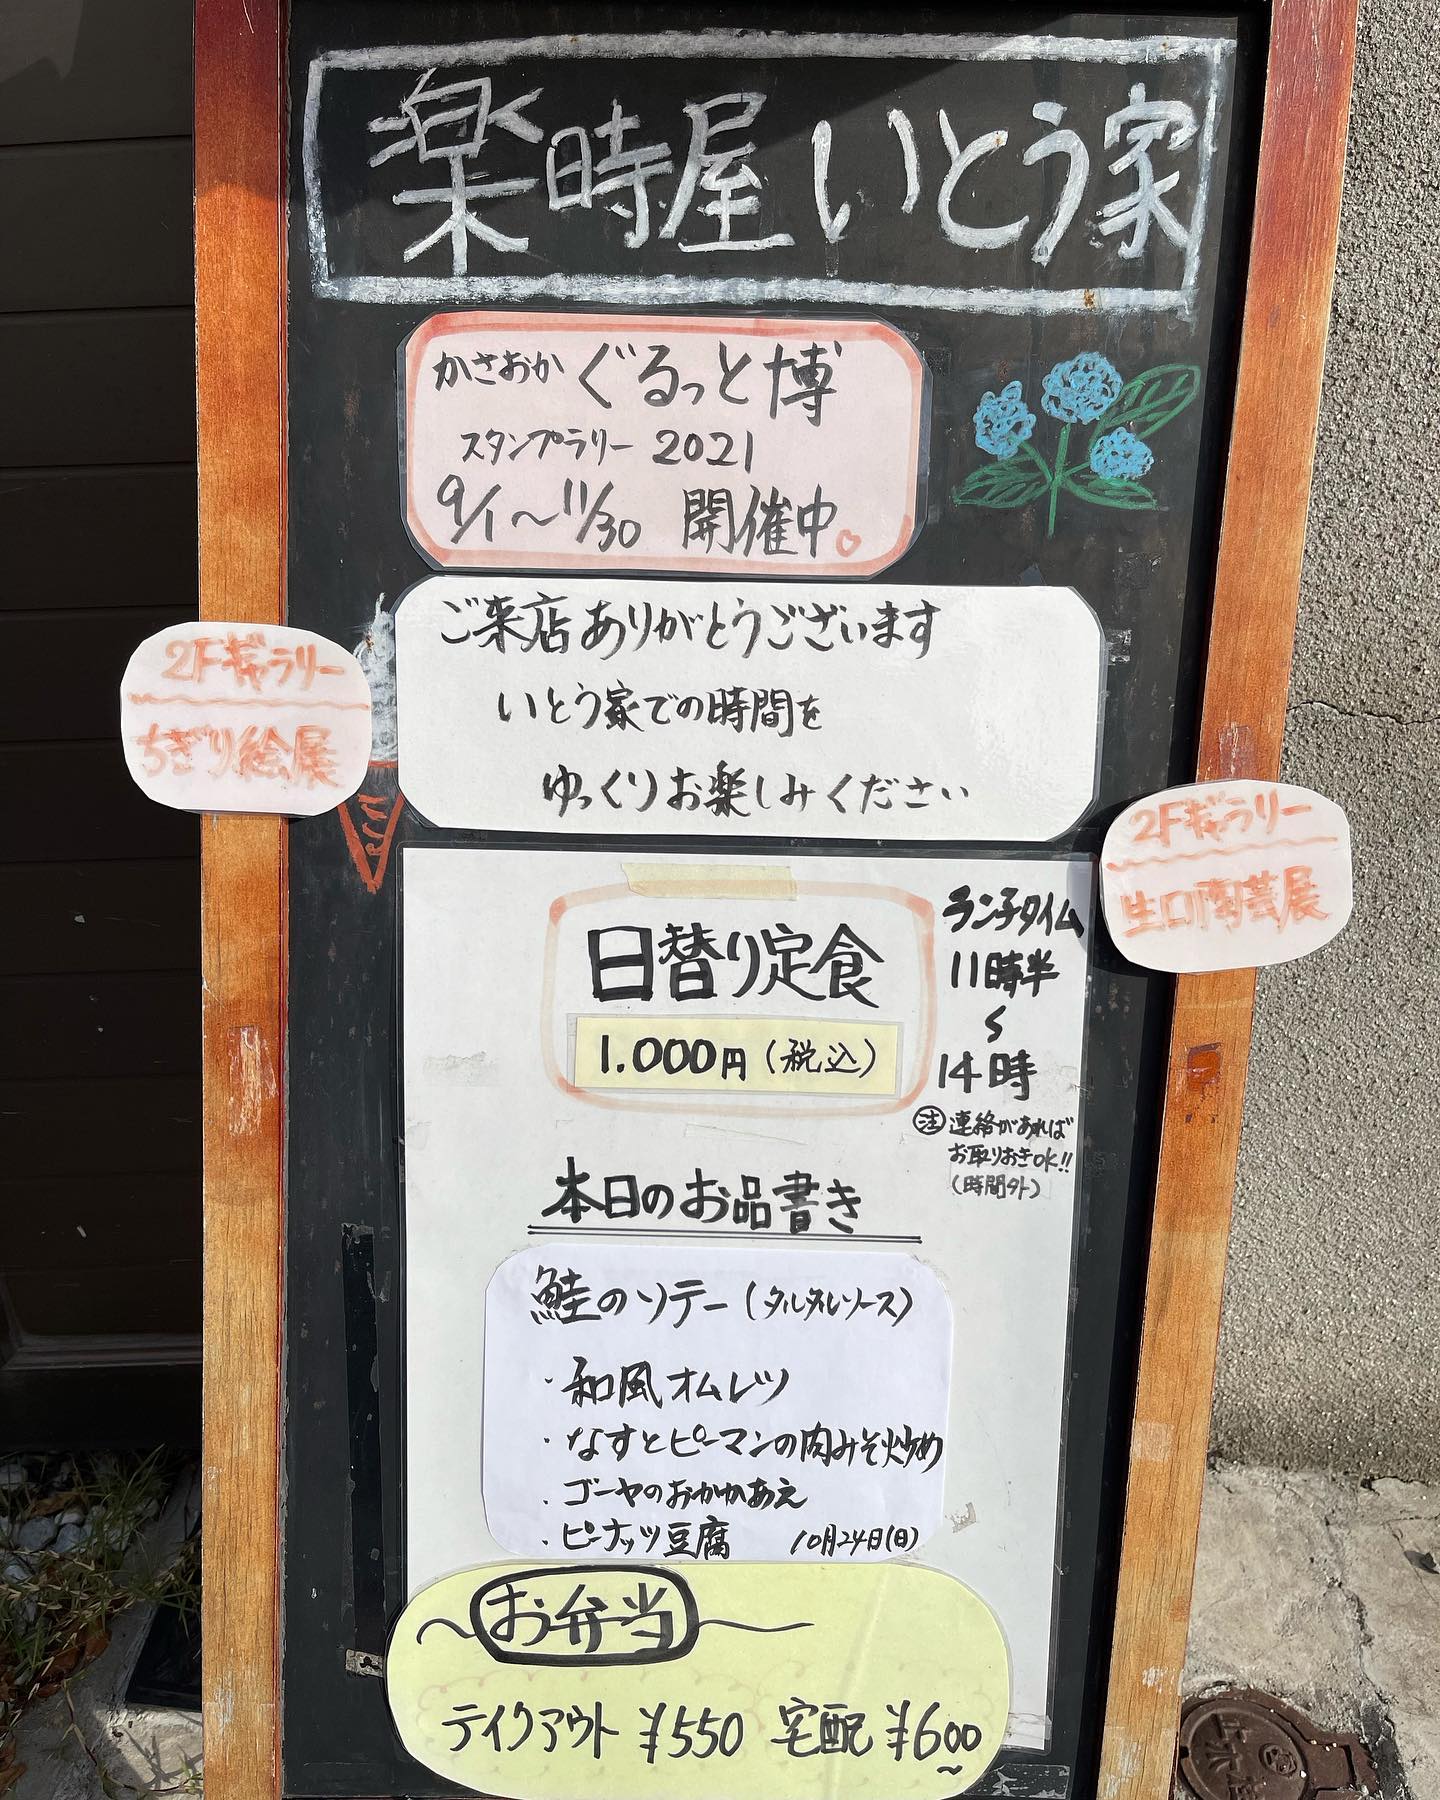 楽時屋 いとう家
かさおか ぐるっと博
スタンプラリー 2021
9/1〜11/30 開催中。
ご来店ありがとうございます
いとう家での時間を
ゆっくりお楽しみください
2Fギャラリー
ちぎり絵展
2Fギャラリー
生口陶芸展
日替り定食
1.000円(税込)
ランチタイム
11時半
〜
14時
注 連絡があれば
お取りおきOK!!
(時間外)
本日のお品書き
鮭のソテー(タルタルソース)
・和風オムレツ
・なすとピーマンの肉みそ炒め
・ゴーヤのおかかあえ
・ピーナッツ豆腐 10月24日(日)
〜お弁当〜
テイクアウト ¥550 宅配 ¥600〜